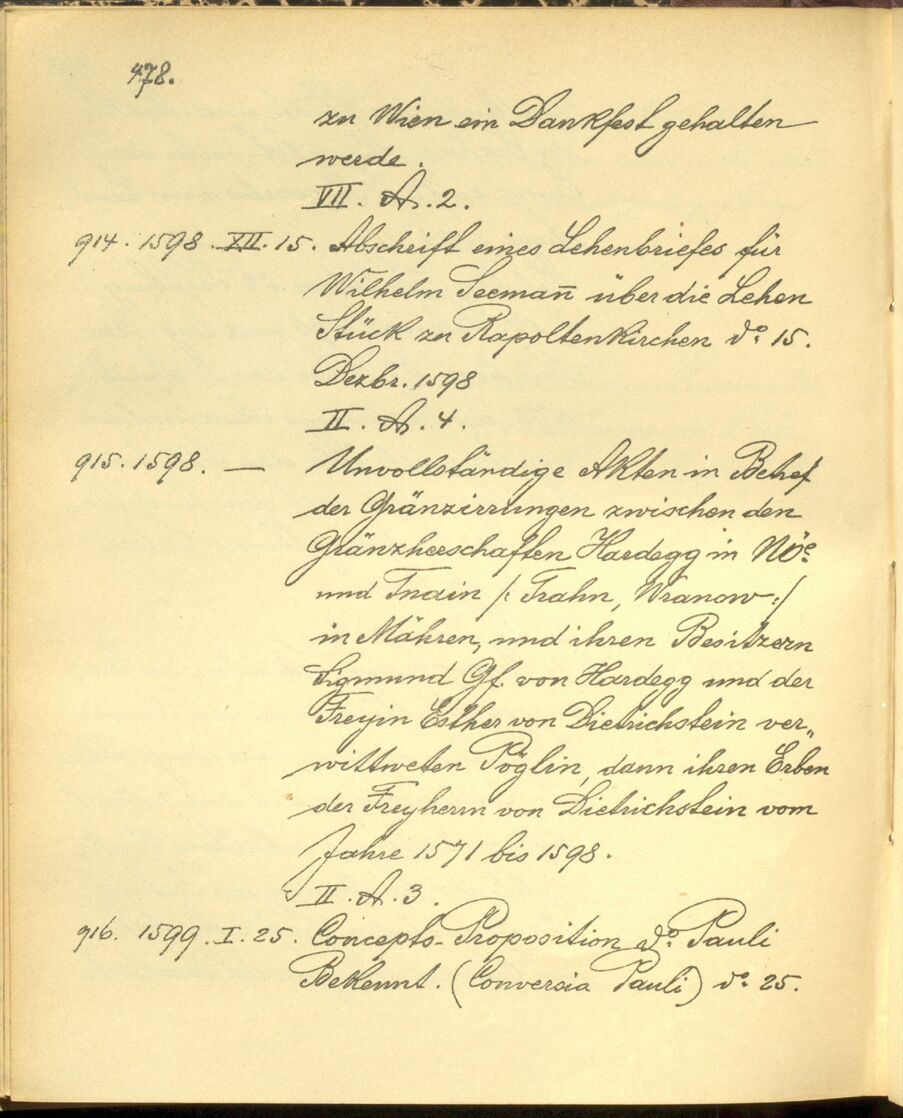 478.
zu Wien ein Dankfest gehalten
werde.
VII. A. 2.
914. 1598. XII. 15. Abschrift eines Lehenbriefes für
Wilhelm Seemañ über die Lehen
Stück zu Rapoltenkirchen do. 15.
Dezbr. 1598
II. A. 4.
915. 1598. — Unvollständige Akten in Betref
der Gränzirrungen zwischen den
Gränzherschaften Hardegg in NÖe.
und Fnain /: Frahn, Wranow :/
in Mähren, und ihren Besitzern
Sigmund Gf. von Hardegg und der
Freyin Esther von Dietrichstein ver„
wittweten Pöglin, dann ihren Erben
der Freyherrn von Dietrichstein vom
Jahre 1571 bis 1598.
II. A. 3.
916. 1599. I. 25. Concepto-Proposition do. Pauli
Bekennt. (Conversia Pauli) do. 25.